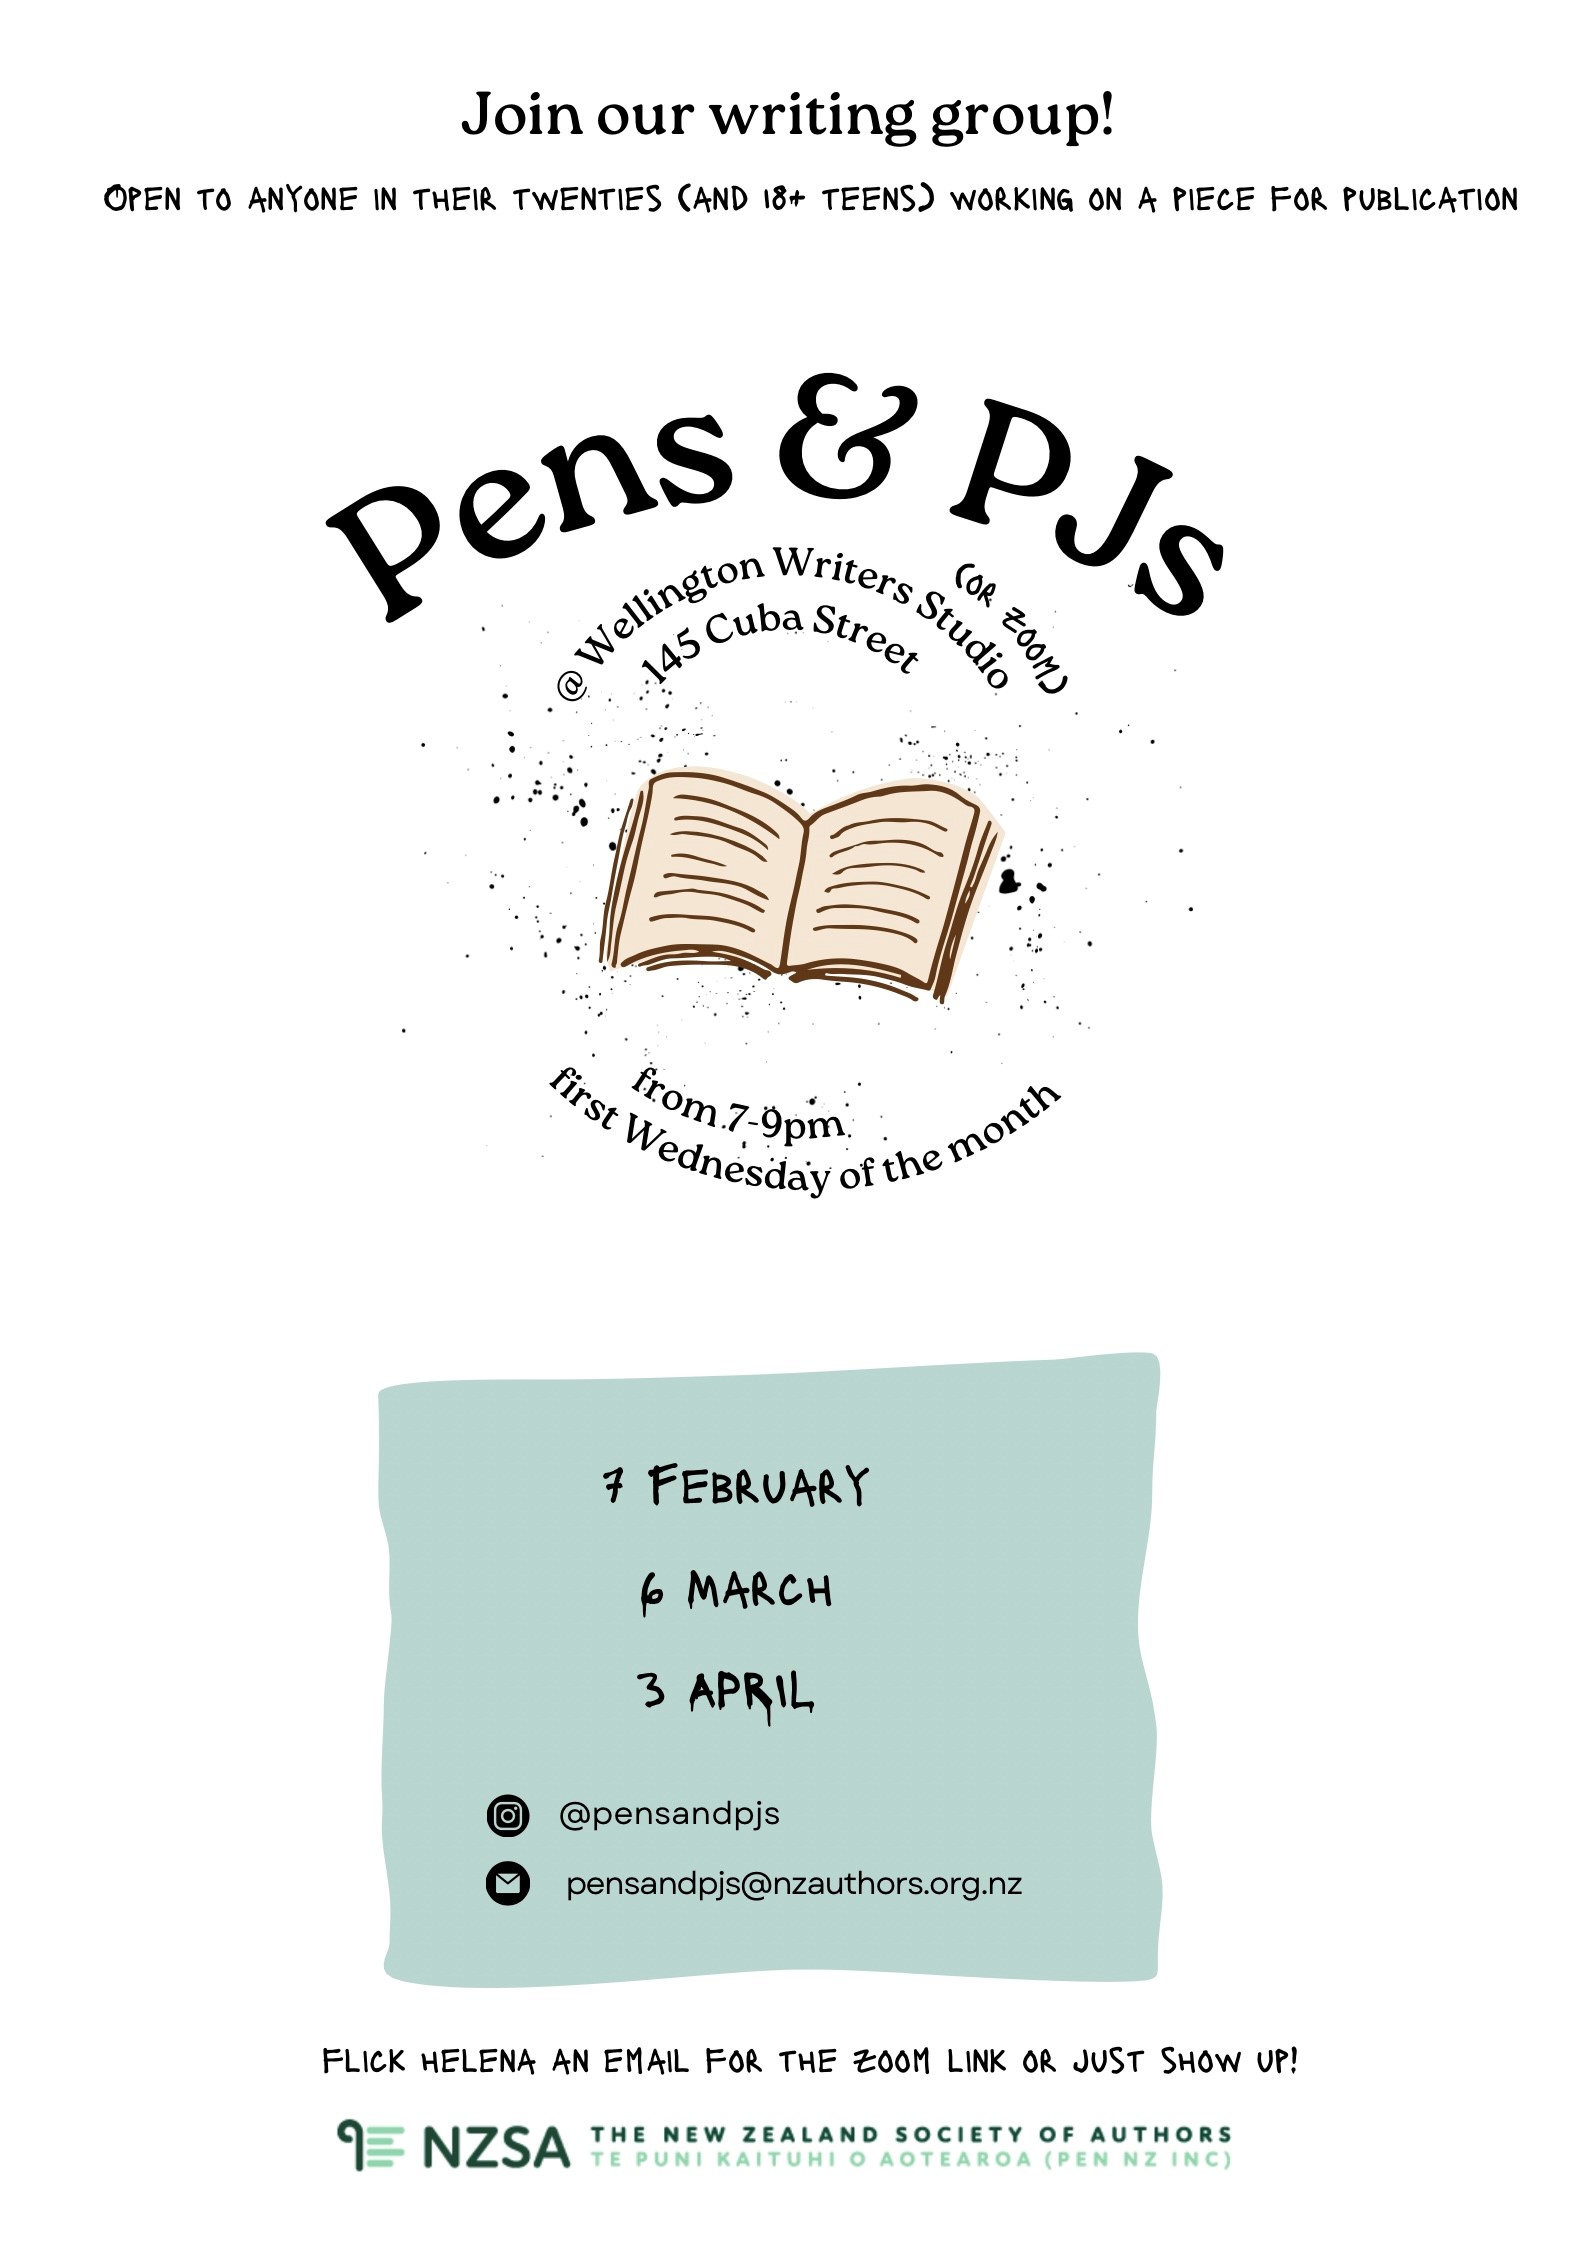 Join our writing group!
OPEN TO ANYONE IN THEIR TWENTIES (AND 18+ TEENS) WORKING ON A PIECE FOR PUBLICATION
Pens & PJs
@ Wellington Writers Studio
(OR ZOOM)
145 Cuba Street
from 7-9pm
first Wednesday of the month
7 FEBRUARY
6 MARCH
3 APRIL
@pensandpjs
pensandpjs@nzauthors.org.nz
FLICK HELENA AN EMAIL FOR THE ZOOM LINK OR JUST SHOW UP!
NZSA THE NEW ZEALAND SOCIETY OF AUTHORS
TE PUNI KAITUHI O AOTEAROA (PEN NZ INC)